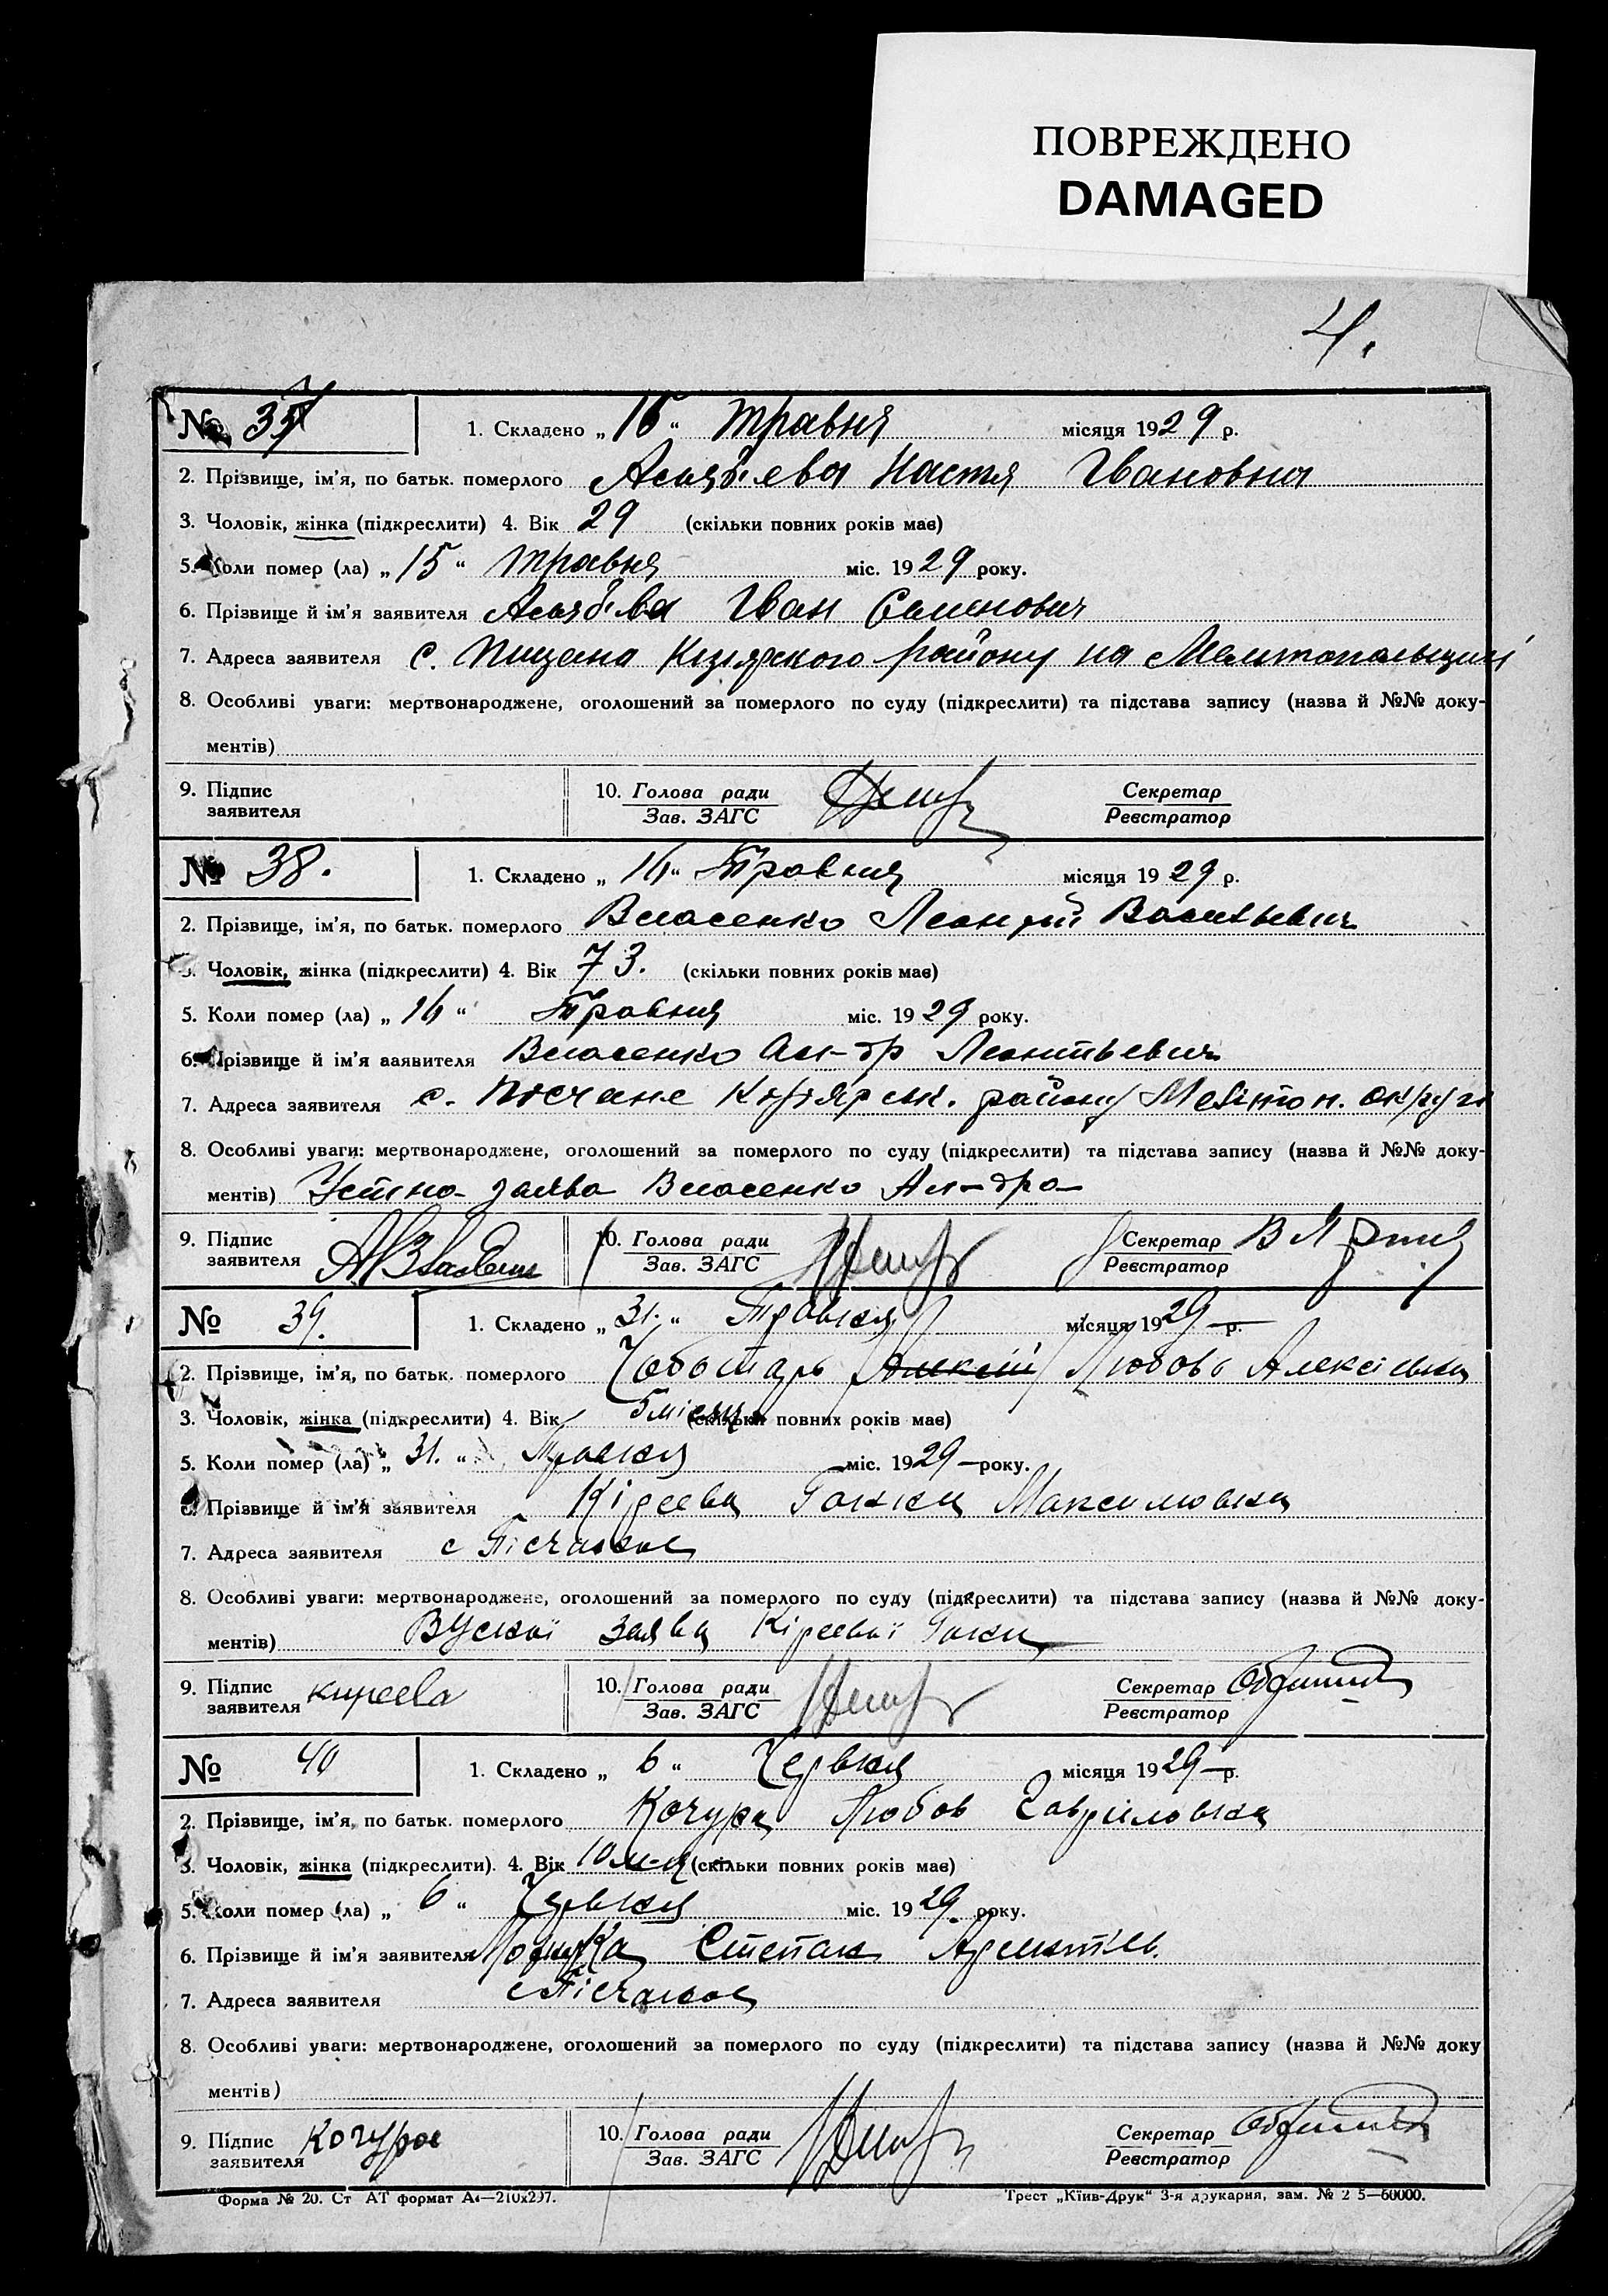 ПОВРЕЖДЕНО
DAMAGED
4.
№ 37 1. Складено „ 16 “ травня місяця 1929 р.
2. Прізвище, ім’я, по батьк. померлого Настя Івановна
3. Чоловік, жінка (підкреслити) 4. Вік 29 (скільки повних років має)
5. Коли помер (ла) „ 15 “ травня міс. 1929 року.
6. Прізвище й ім’я заявителя Іван Семенович
7. Адреса заявителя с. Пищана Кизіярского району на Мелитопольщині
8. Особливі уваги: мертвонароджене, оголошений за померлого по суду (підкреслити) та підстава запису (назва й №№ доку-
ментів)
9. Підпис заявителя 10. Голова ради Зав. ЗАГС Секретар Реєстратор
№ 38. 1. Складено „ 16 “ Травня місяця 1929 р.
2. Прізвище, ім’я, по батьк. померлого Власенко Леонтій Васильевич
3. Чоловік, жінка (підкреслити) 4. Вік 73. (скільки повних років має)
5. Коли помер (ла) „ 16 “ Травня міс. 1929 року.
6. Прізвище й ім’я заявителя Власенко Ал-др Леонтьевич
7. Адреса заявителя с. Песчане Кизіярськ. району Мелітоп. округи
8. Особливі уваги: мертвонароджене, оголошений за померлого по суду (підкреслити) та підстава запису (назва й №№ доку-
ментів) Устна заява Власенко Ал-дра
9. Підпис заявителя 10. Голова ради Зав. ЗАГС Секретар Реєстратор
№ 39. 1. Складено „ 31. “ Травня місяця 1929 р.
2. Прізвище, ім’я, по батьк. померлого Чоботарь Алексій Любовь Алексіевна
3. Чоловік, жінка (підкреслити) 4. Вік 5 місяц (скільки повних років має)
5. Коли помер (ла) „ 31. “ Травня міс. 1929 року.
6. Прізвище й ім’я заявителя Кіреева Ганна Максимовна
7. Адреса заявителя с Пісчаное
8. Особливі уваги: мертвонароджене, оголошений за померлого по суду (підкреслити) та підстава запису (назва й №№ доку-
ментів) заява Кіреевої Ганни
9. Підпис заявителя киреева 10. Голова ради Зав. ЗАГС Секретар Реєстратор
№ 40 1. Складено „ 6 “ Червня місяця 1929 р.
2. Прізвище, ім’я, по батьк. померлого Кочура Любов Гавриловна
3. Чоловік, жінка (підкреслити). 4. Вік 10 м-ц (скільки повних років має)
5. Коли помер (ла) „ 6 “ Червня міс. 1929 року.
6. Прізвище й ім’я заявителя Степан
7. Адреса заявителя с Пісчаное
8. Особливі уваги: мертвонароджене, оголошений за померлого по суду (підкреслити) та підстава запису (назва й №№ доку
ментів)
9. Підпис заявителя Кочура 10. Голова ради Зав. ЗАГС Секретар Реєстратор
Форма № 20. Ст АТ формат А4—210х297. Трест „Київ-Друк“ 3-я друкарня, зам. № 2 5—60000.